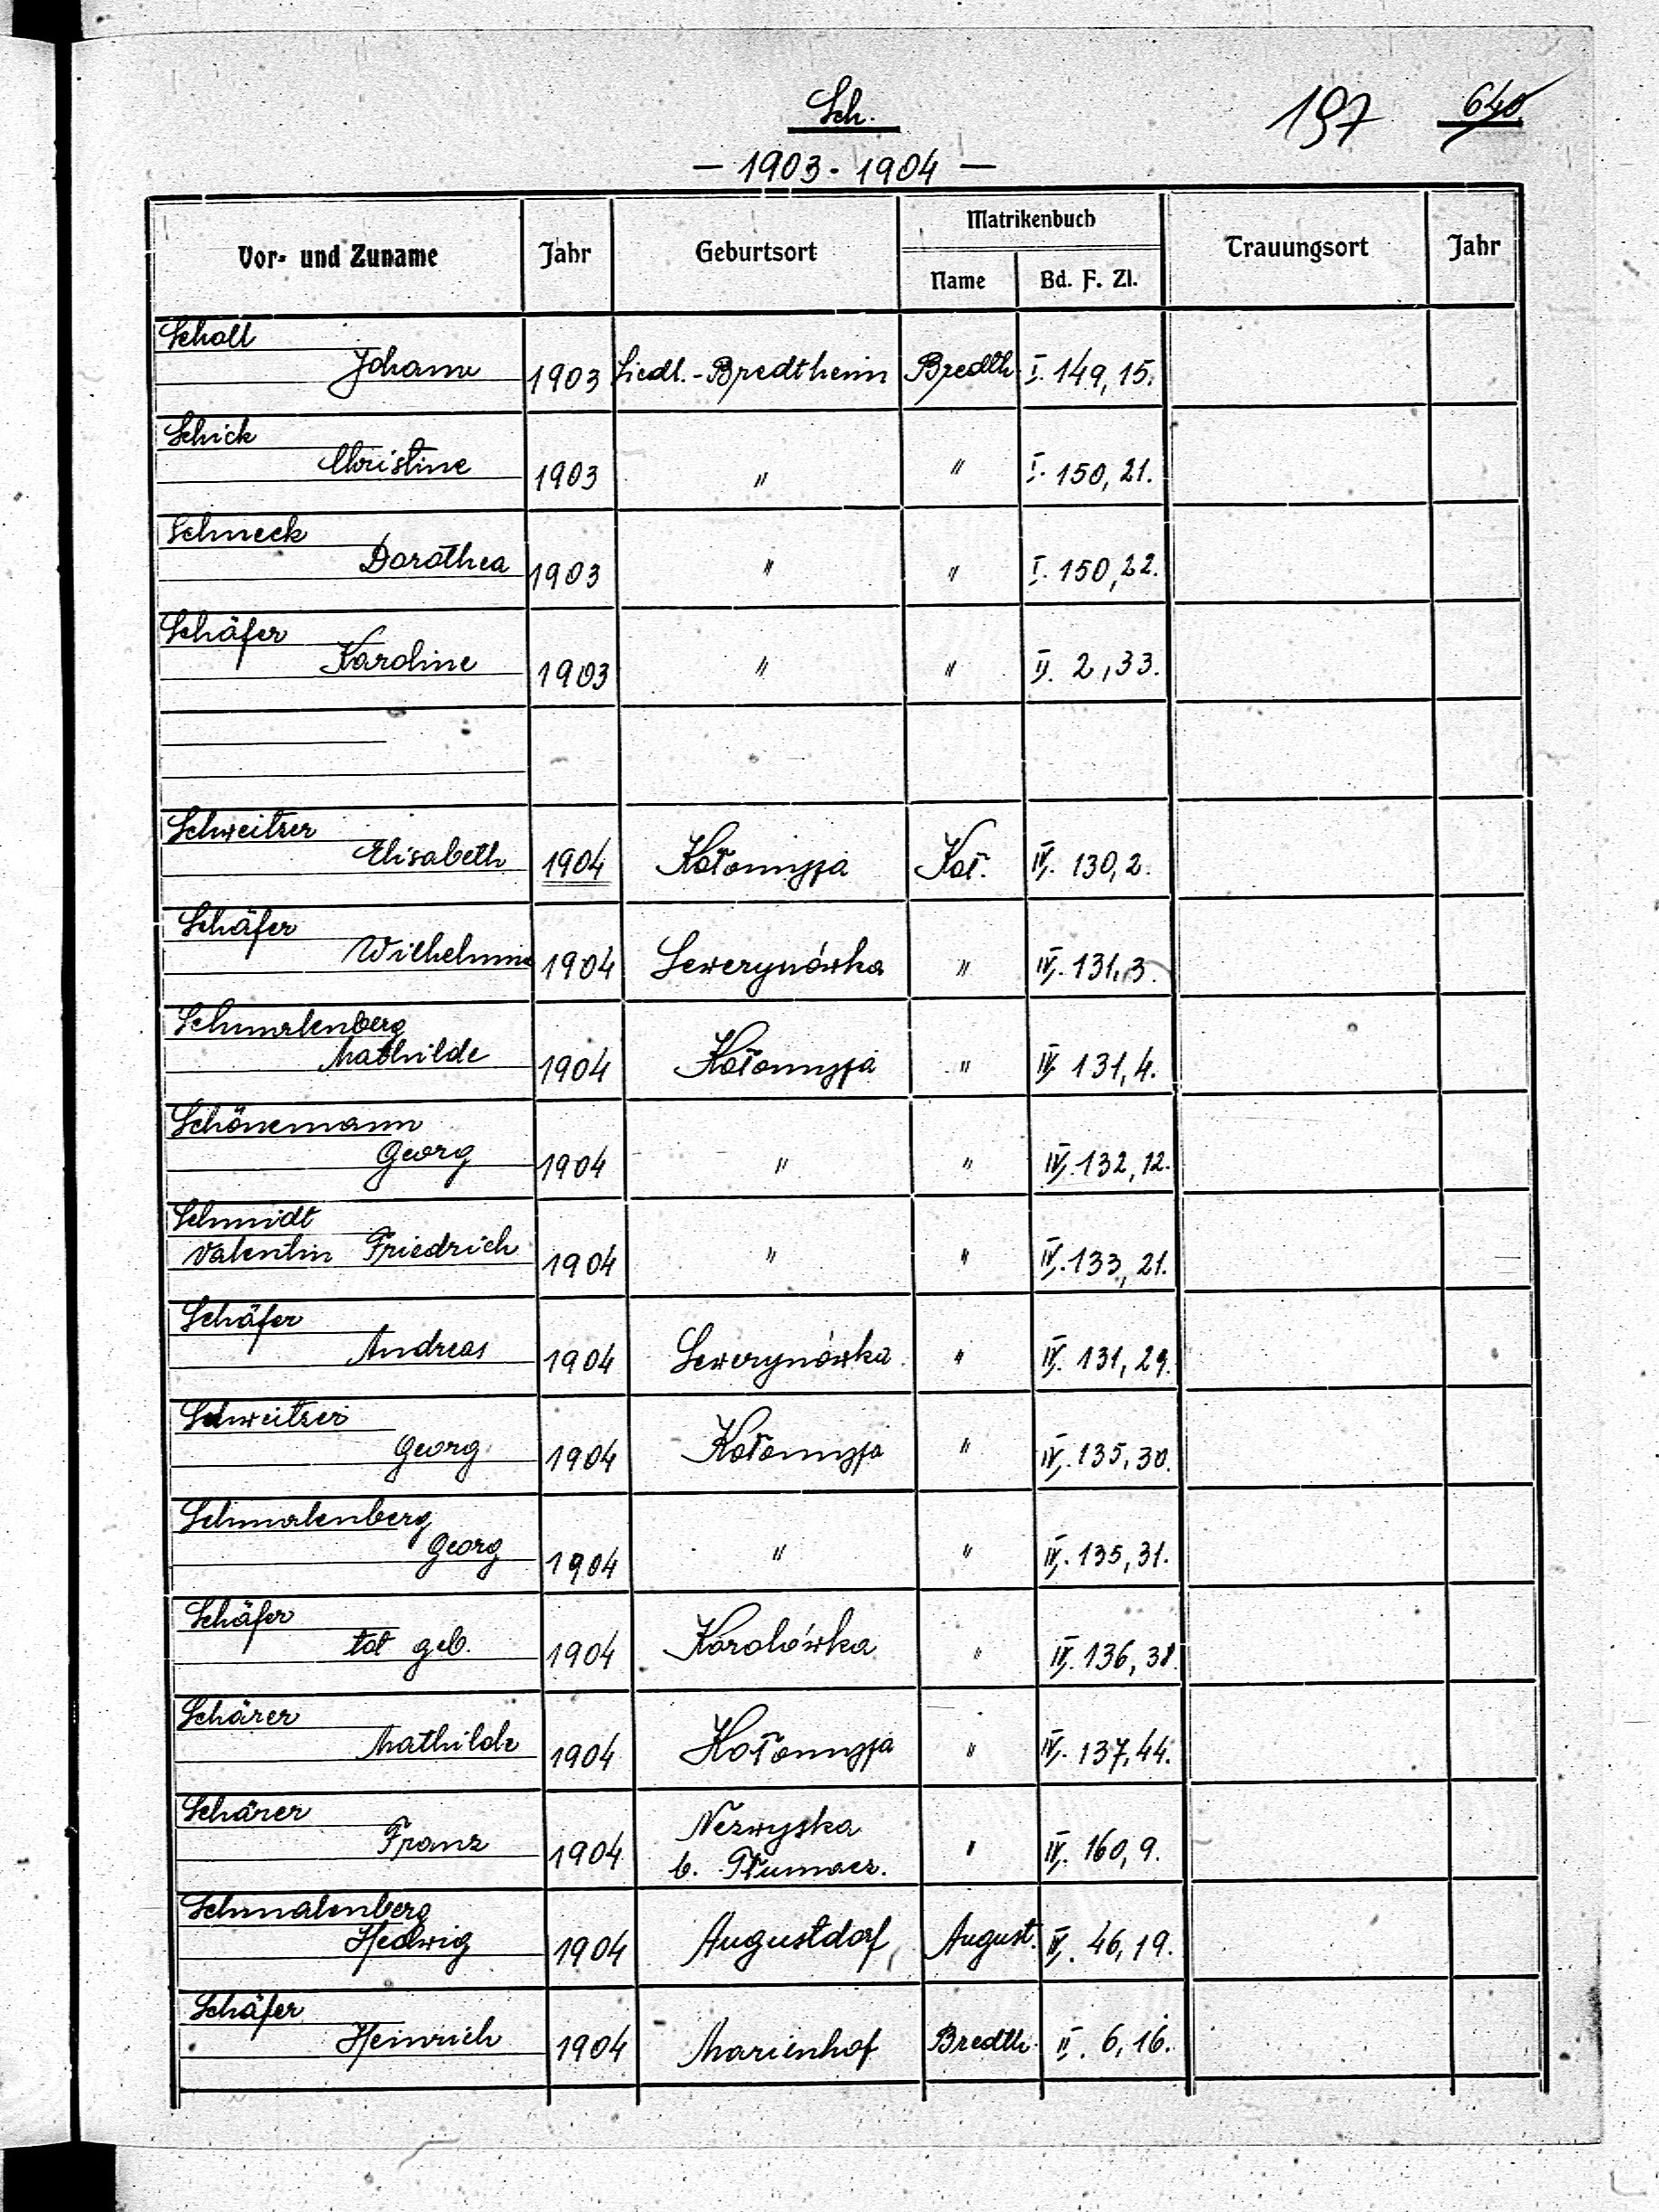 Sch.
197 640
— 1903 - 1904 —
Vor- und Zuname Jahr Geburtsort Matrikenbuch Trauungsort Jahr
Name Bd. F. Zl.
Scholl
Johann 1903 Siedl.-Bredtheim Bredth. I. 149, 15.
Schick
Christine 1903 " " I. 150, 21.
Schneck
Dorothea 1903 " " I. 150, 22.
Schäfer
Karoline 1903 " " II. 2, 33.
Schweitzer
Elisabeth 1904 Kołomyja Koł. IV. 130, 2.
Schäfer
Wilhelmine 1904 Sewerynówka " IV. 131, 3.
Schmalenberg
Mathilde 1904 Kołomyja " IV. 131, 4.
Schönemann
Georg 1904 " " IV. 132, 12.
Schmidt
Valentin Friedrich 1904 " " IV. 133, 21.
Schäfer
Andreas 1904 Sewerynówka " IV. 131, 29.
Schweitzer
Georg 1904 Kołomyja " IV. 135, 30.
Schmalenberg
Georg 1904 " " IV. 135, 31.
Schäfer
tot geb. 1904 Karolówka " IV. 136, 38.
Schärer
Mathilde 1904 Kołomyja " IV. 137, 44.
Schärer
Franz 1904 Nezwyska
b. Tłumacz. " IV. 160, 9.
Schmalenberg
Hedwig 1904 Augustdorf August. 46, 19.
Schäfer
Heinrich 1904 Marienhof Bredth. II. 6, 16.